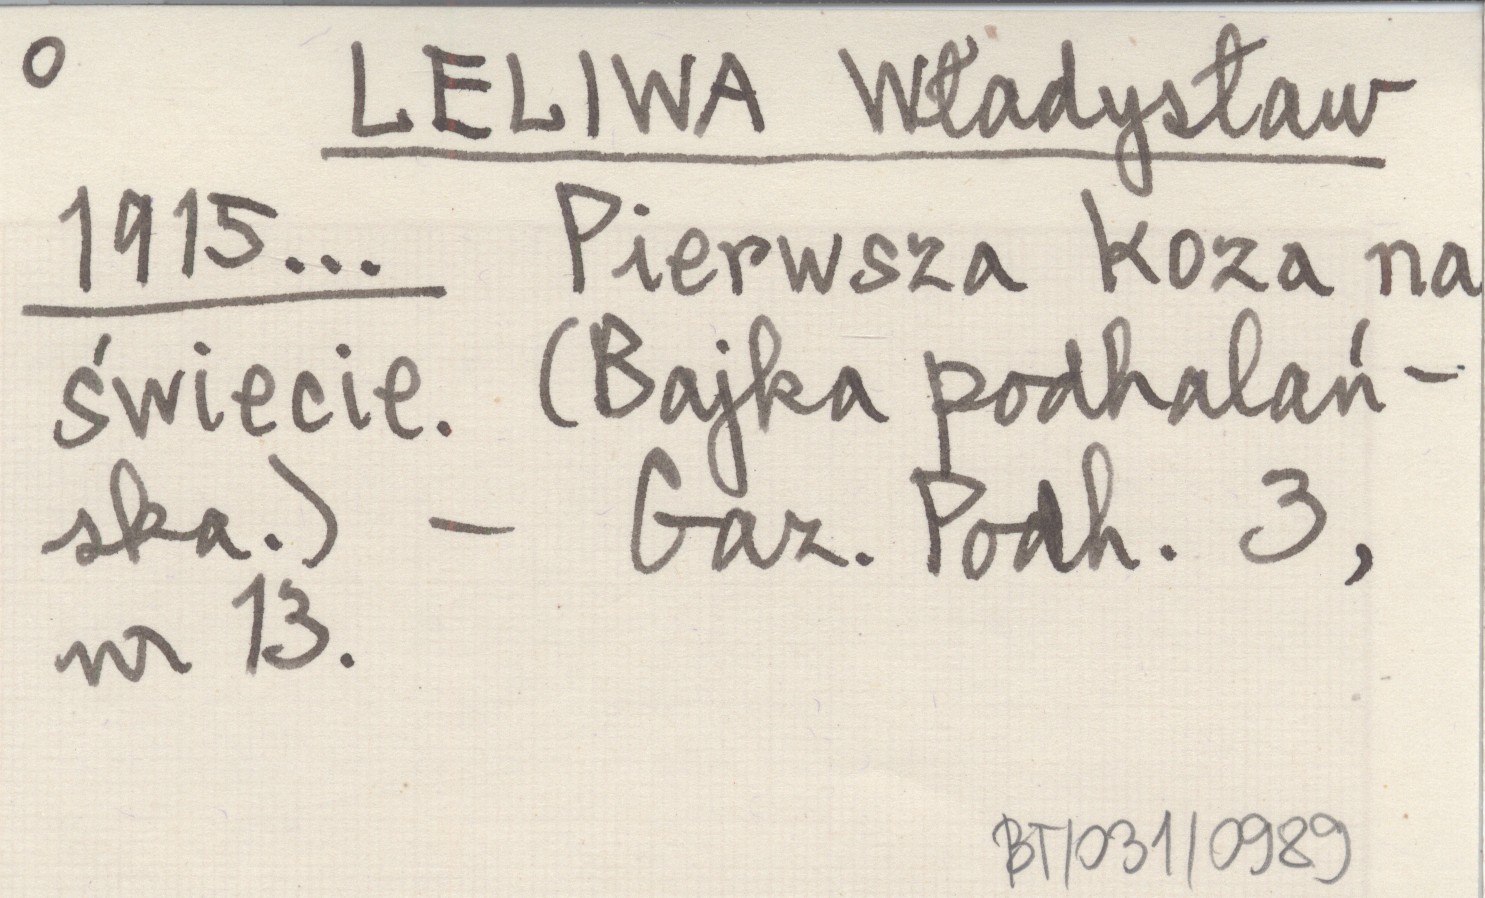 o LELIWA Władysław
1915... Pierwsza koza na
świecie. (Bajka podhalań-
ska.) - Gaz. Podh. 3,
nr 13.
BT/031/0989